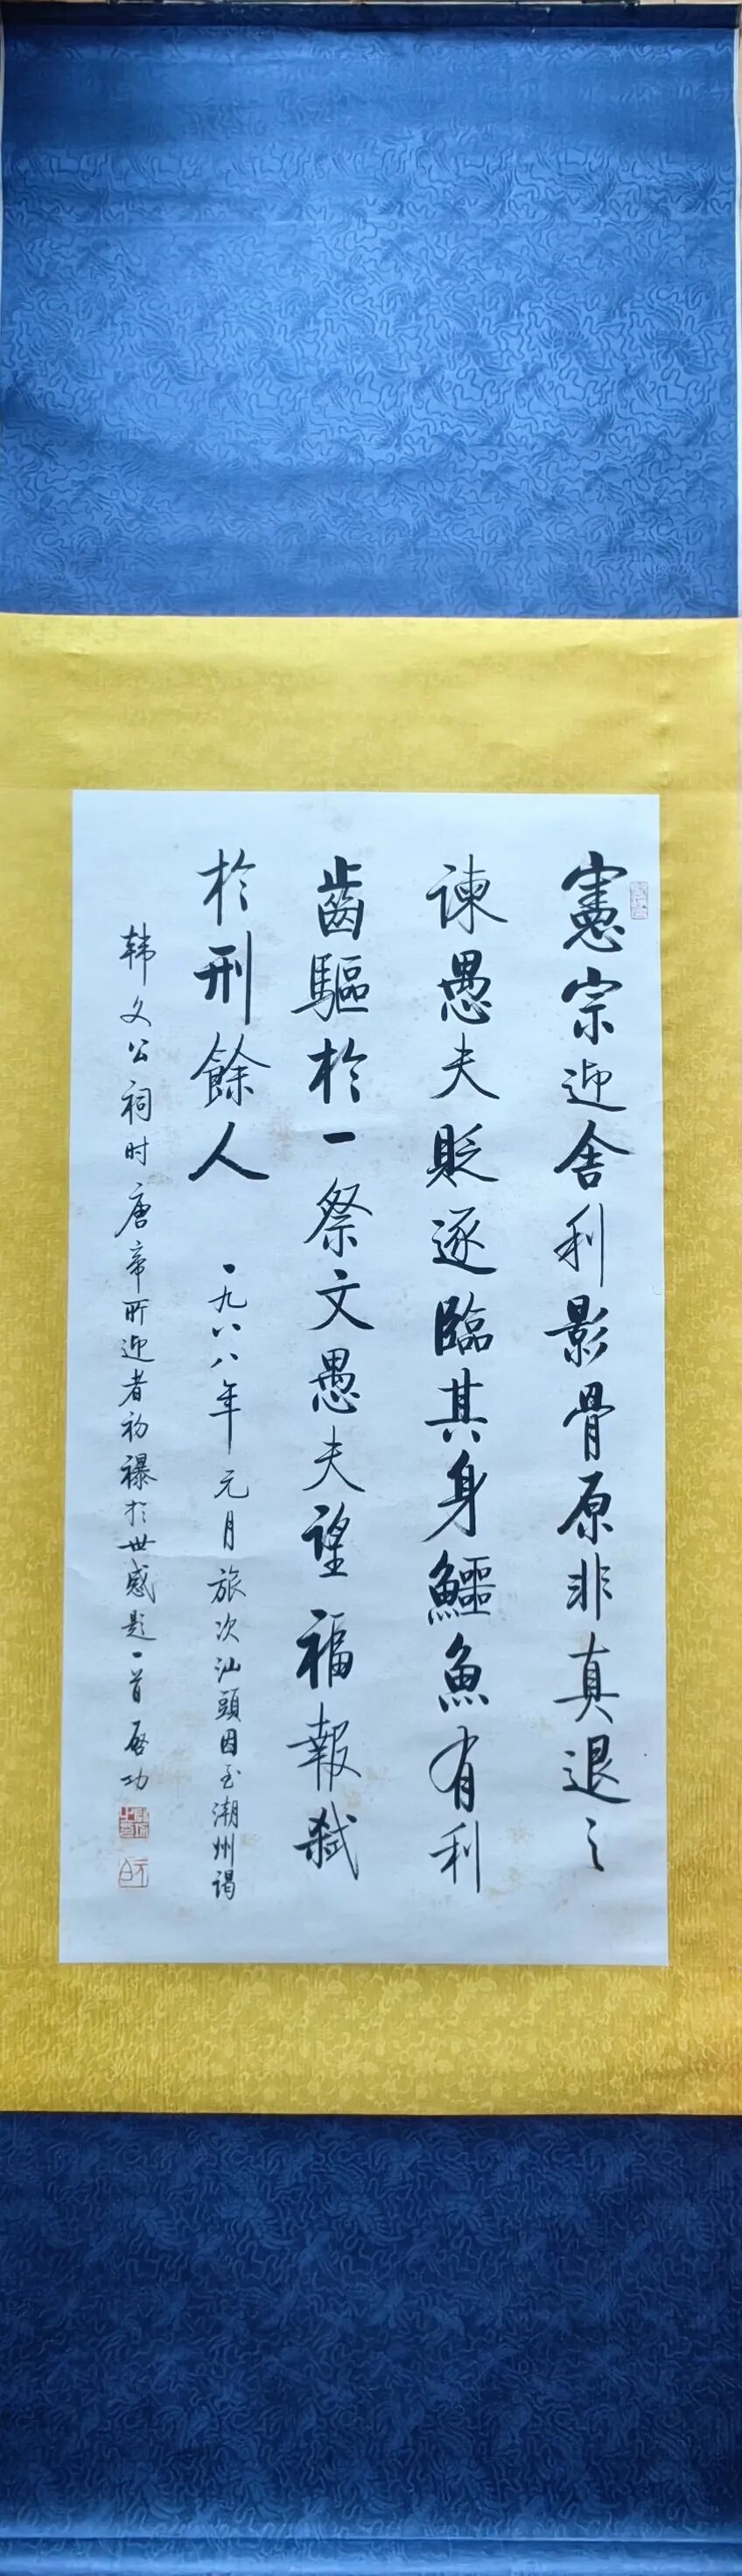 憲宗迎舍利影骨原非真退之
諫愚夫貶逐臨其身鱷魚有利
齒驅於一祭文愚夫望福報弑
於刑餘人
一九八八年元月旅次汕頭因至潮州謁
韩文公祠时唐帝所迎者初襮於世感题一首启功